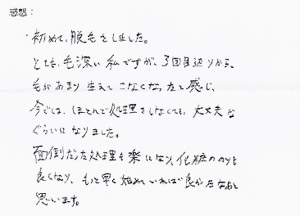 感想：
・初めて、脱毛をしました。
とても毛深い私ですが、3回目辺りから、
毛があまり生えてこなくなったと感じ、
今では、ほとんど処理をしなくても、大丈夫な
ぐらいになりました。
面倒だった処理も楽になり、化粧ののりも
良くなり、もっと早く始めていれば良かったなあと
思います。